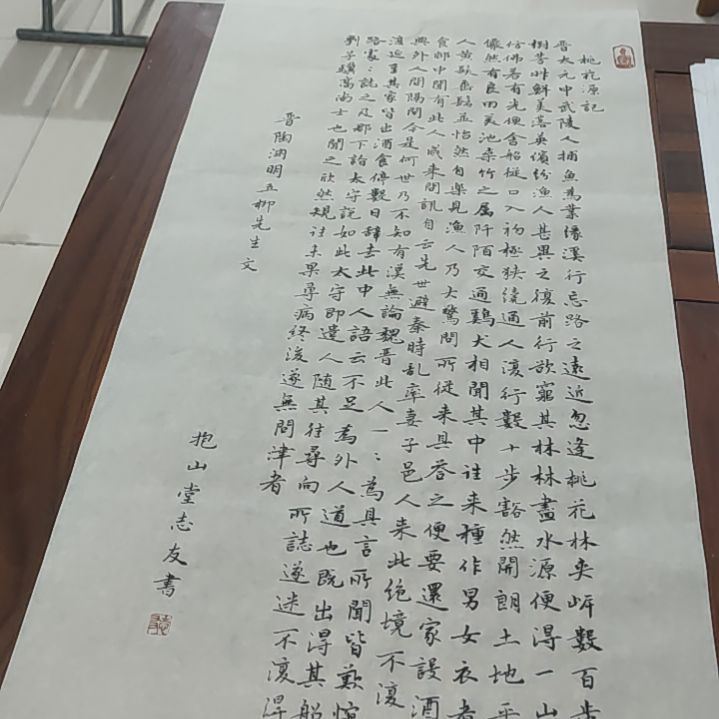 桃花源記
晋太元中武陵人捕魚為業緣溪行忘路之遠近忽逢桃花林夾岸數百步
樹芳艸鮮美落英繽紛漁人甚異之復前行欲窮其林林盡水源便得一山
仿佛若有光便舍船從口入初極狹纔通人復行數十步豁然開朗土地平
儼然有良田美池桑竹之屬阡陌交通雞犬相聞其中往来種作男女衣著
人黄髮垂髫並怡然自樂見漁人乃大驚問所從来具答之便要還家設酒
食邨中聞有此人咸来問訊自云先世避秦時乱率妻子邑人来此绝境不復
與外人間隔問今是何世乃不知有漢無論魏晋此人一：為具言所聞皆歎惋
復延至其家皆出酒食停數日辭去此中人語云不足為外人道也既出得其船
路處：誌之及郡下詣太守說如此太守即遣人随其往尋向所誌遂迷不復得
劉子驥高尚士也聞之欣然規往未果尋病終後遂無問津者
晋陶淵明五柳先生文
抱山堂志友書